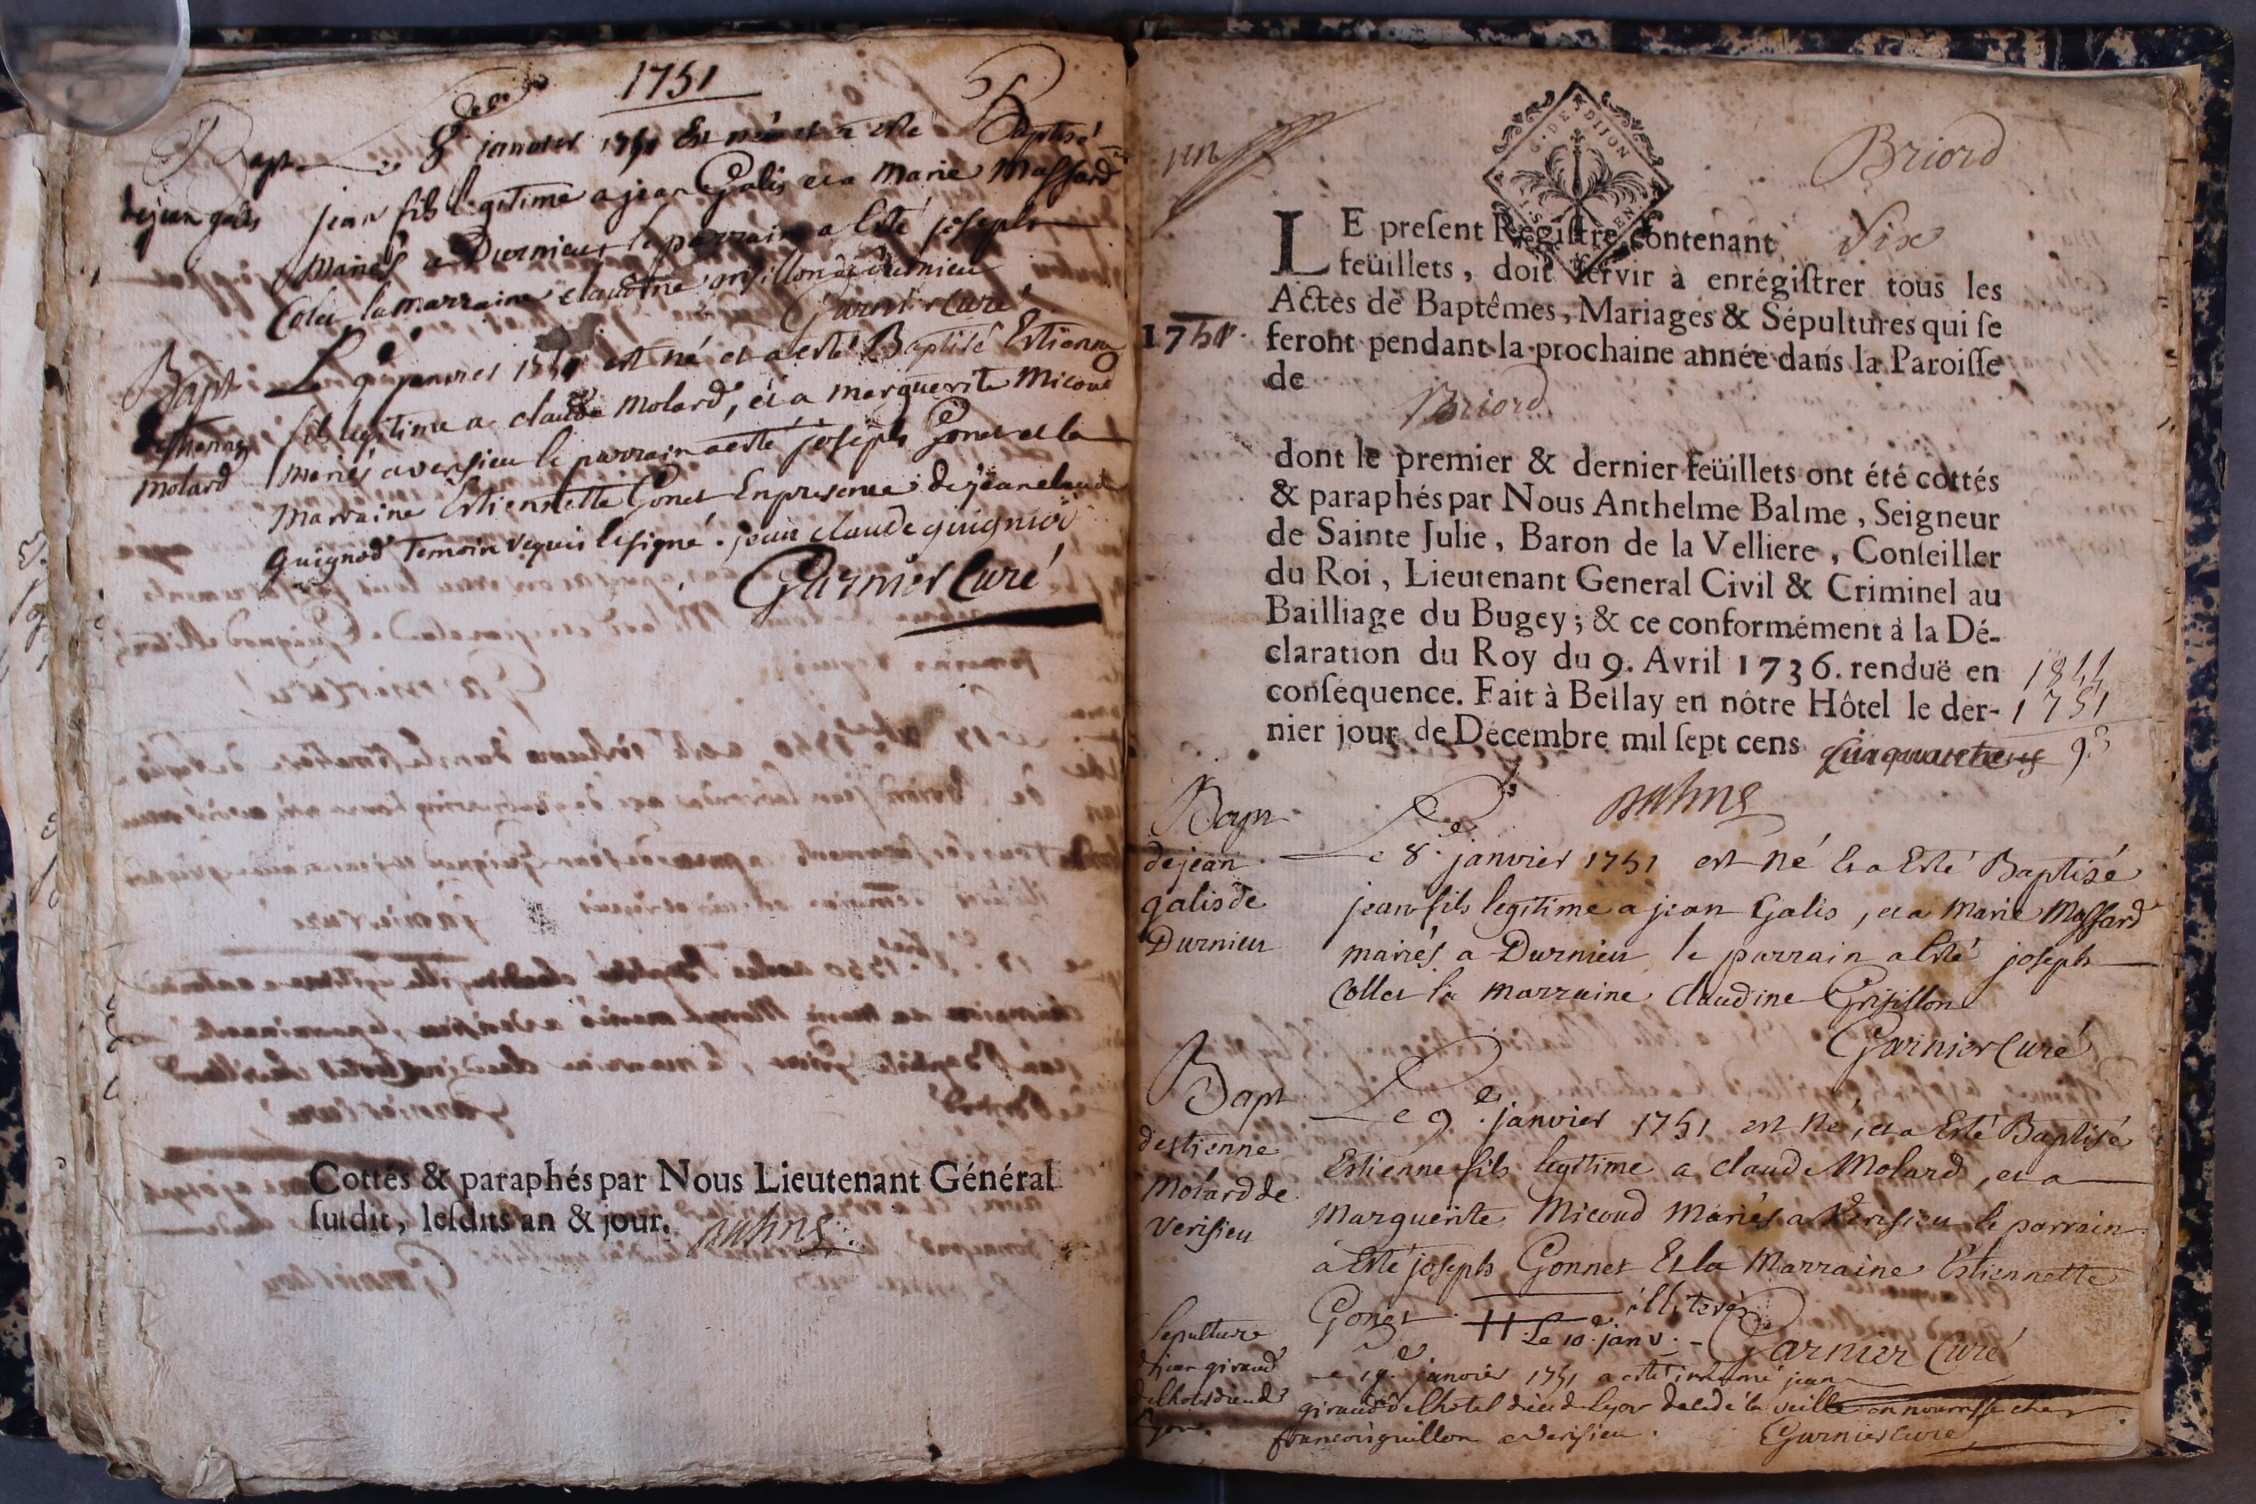 1751
Bapt
de jean galis
Le 8e janvier 1751 est né et a esté Baptisé
jean fils legitime a jean Galis et a Marie Massard
Mariés a Durnieu le parrain a Esté joseph
Colet la marraine claudine grisillon de Durnieu
Garnier Curé
Bapt
destienne
molard
Le 9e janvier 1751 est né et a esté Baptisé Estienne
fils legitime a claude Molard, et a marguerite Micoud
Mariés a versieu le parrain a esté joseph Gonet et la
Marraine Estiennette Gonet En presence de jean claude
Guignod Temoin requis et signé. jean claude guignod
Garnier Curé
Cottés & paraphés par Nous Lieutenant Général
susdit, lesdits an & jour. Balme
G. DE DIJON
Briord
LE present Régistre contenant Six
feüillets, doit servir à enrégistrer tous les
Actes de Baptêmes, Mariages & Sépultures qui se
1751. feront pendant la prochaine année dans la Paroisse
de
Briord
dont le premier & dernier feüillets ont été cottés
& paraphés par Nous Anthelme Balme, Seigneur
de Sainte Julie, Baron de la Velliere, Conseiller
du Roi, Lieutenant General Civil & Criminel au
Bailliage du Bugey; & ce conformément à la Dé-
claration du Roy du 9. Avril 1736. renduë en
conséquence. Fait à Bellay en nôtre Hôtel le der-
nier jour de Décembre mil sept cens
1844
1751
93
Balme
Bapt
de jean
galis de
Durnieu
Le 8e janvier 1751 est Né Et a Esté Baptisé
jean fils legitime a jean Galis, et a Marie Massard
mariés a Durnieu le parrain a Esté joseph
Collet la marraine claudine Grisillon
Garnier Curé
Bapt
d'estienne
Molard de
Verisieu
Le 9e janvier 1751 est Né, et a Esté Baptisé
Estienne fils legitime a claude Molard, et a
Marguerite Micoud Mariés a Verisieu le parrain
a Esté joseph Gonnet Et la Marraine Estiennette
Gonet illiterés
Le 10e janv.
Garnier Curé
Sepulture
de jean giraud
de lhotel dieu de
Lyon
Le 19e janvier 1751 a esté inhumé jean
giraud de lhotel dieu de Lyon decedé la veille en nourrisse chez
francois guillon a Verisieu.
Garnier Curé